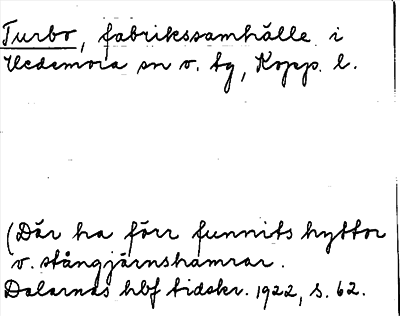 Turbo, fabrikssamhälle i
Hedemora sn o. tg, Kopp. l.
(Där ha förr funnits hyttor
o. stångjärnshamrar.
Dalarnas hbf tidskr. 1922, s. 62.